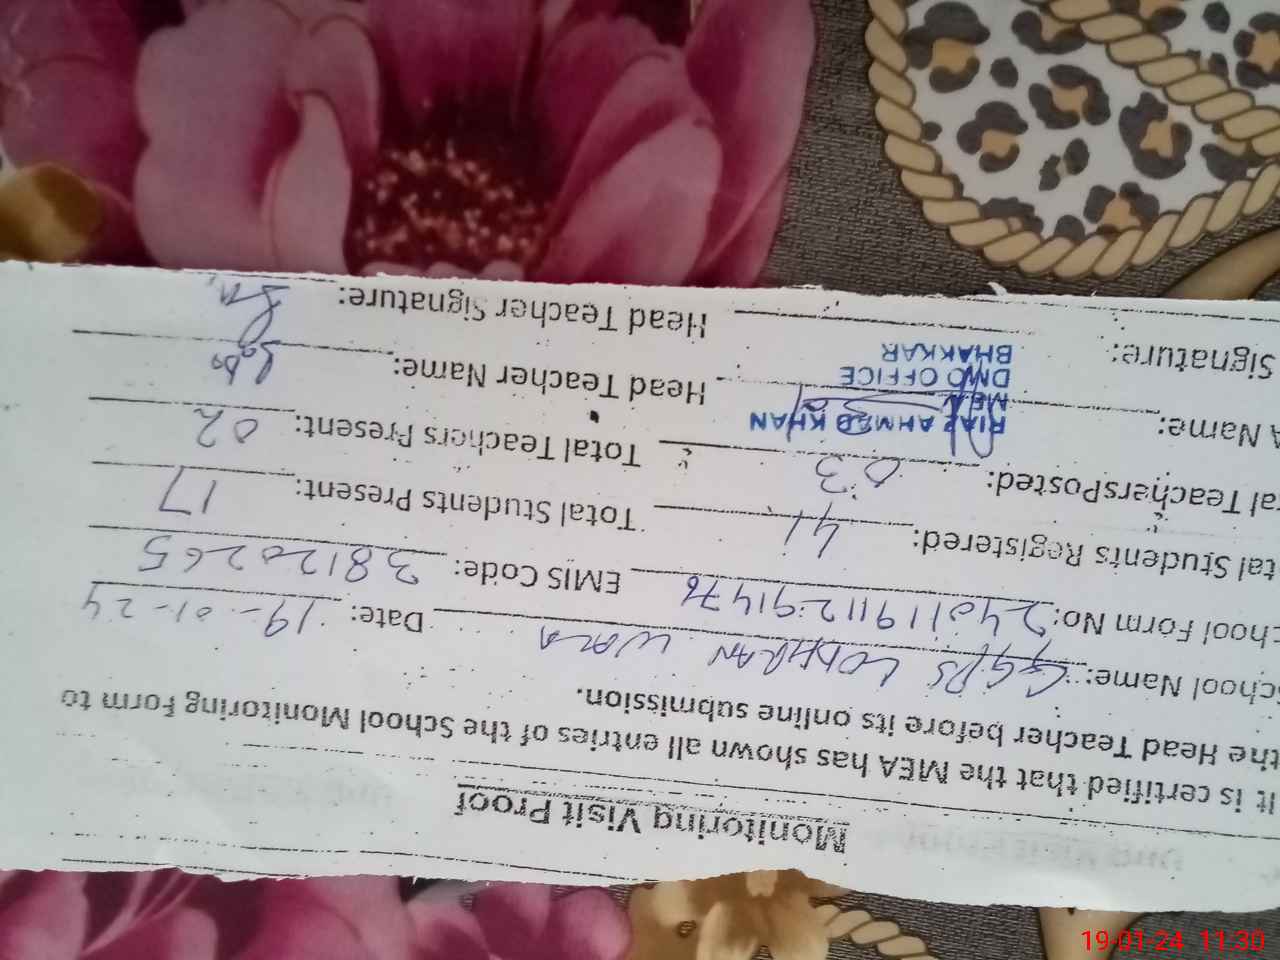 Monitoring Visit Proof
It is certified that the MEA has shown all entries of the School Monitoring Form to
the Head Teacher before its online submission.
chool Name: GGPS LODHRAN WALA Date: 19-01-24
hool Form No: 240119112914 76 EMIS Code: 38120265
tal Students Registered: 41 Total Students Present: 17
al TeachersPosted: 03 Total Teachers Present: 02
A Name: RIAZ AHMED KHAN Head Teacher Name:
MEA
DMO OFFICE
BHAKKAR
Signature: Head Teacher Signature:
19-01-24 11:30